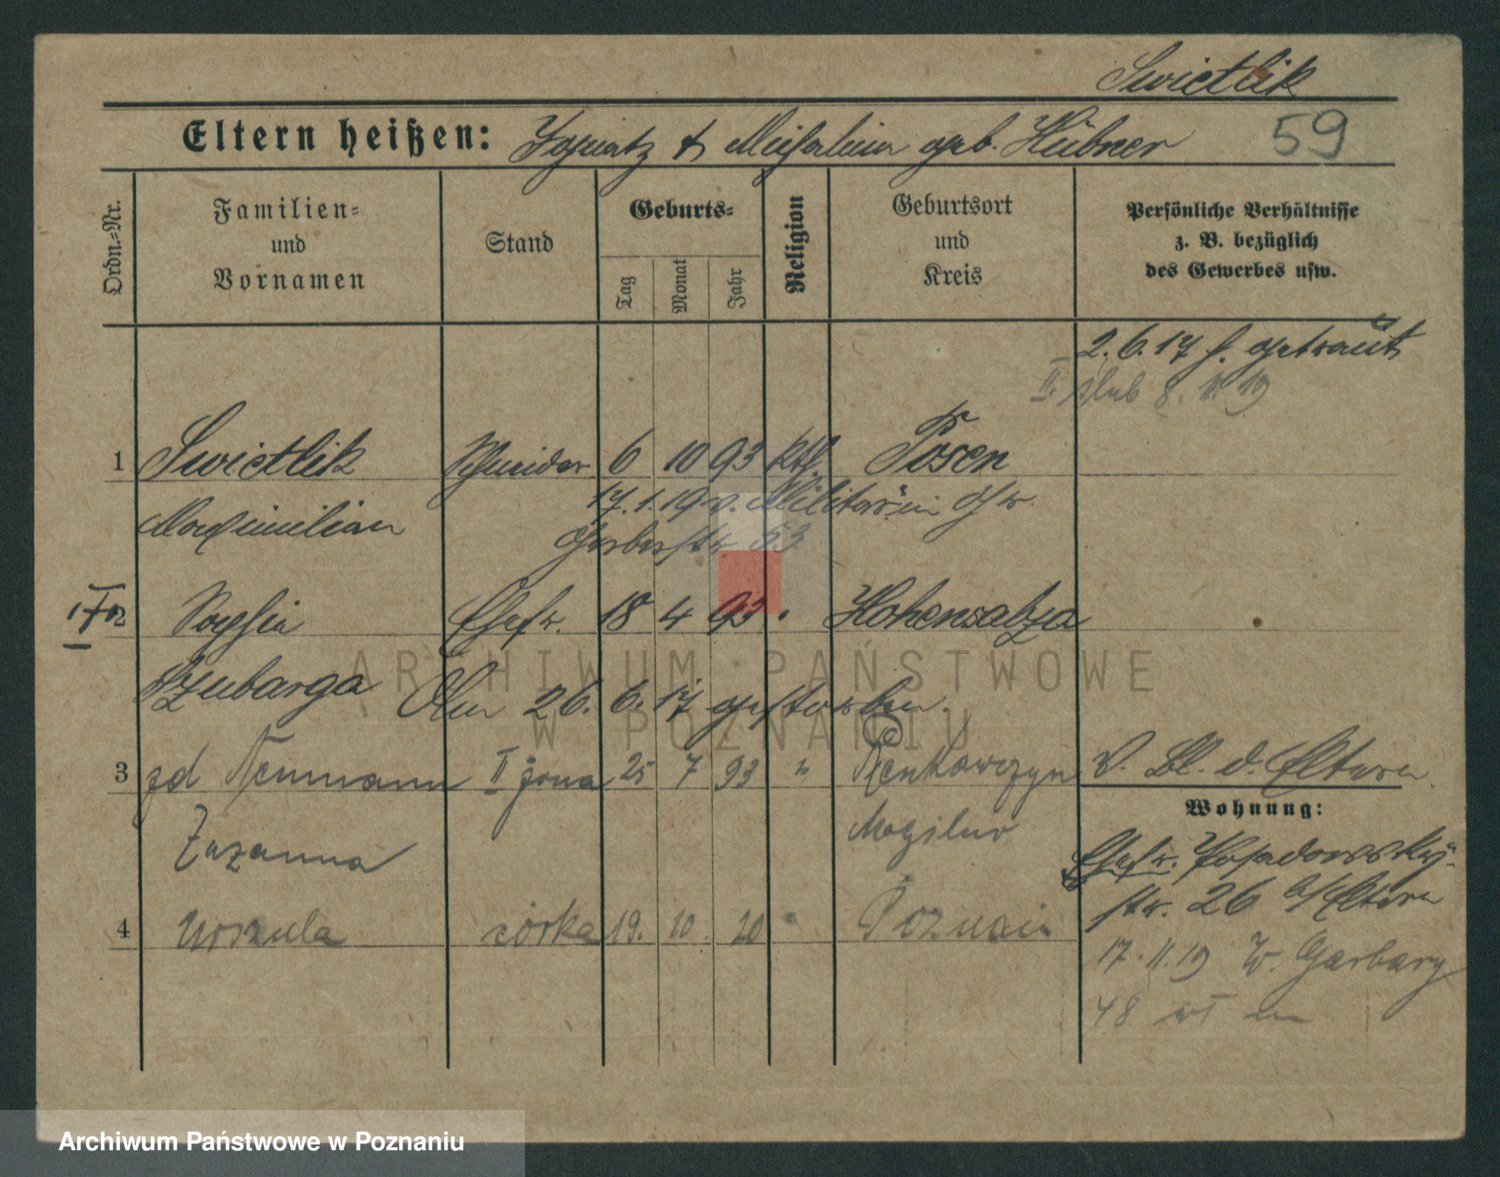 Swietlik
Eltern heißen: Ignatz & Michalina geb. Hübner 59
Ordn.-Nr.
Familien-
und
Vornamen
Stand
Geburts-
Tag
Monat
Jahr
Religion
Geburtsort
und
Kreis
Persönliche Verhältnisse
z. B. bezüglich
des Gewerbes usw.
2.6.17 h. getraut
II. ślub 8. 11. 19
1 Swietlik Schneider 6 10 93 Kth. Posen
Maximilian
17.1.19 v. Militär in
Gerberstr 53
2 Sophia Ehefr. 18 4 93 " Hohensalza
Szubarga Am 26. 6. 17 gestorben.
3 zd Neumann II żona 25 7 93 "
V. Bl. d. Eltern
Zuzanna Mogilno
Wohnung:
Ehefr. Posadowsky-
str. 26 b/Eltern
4 Urszula córka 19. 10. 20 " Poznań
17.11.19 W. Garbary
48
ARCHIWUM PAŃSTWOWE
W POZNANIU
Archiwum Państwowe w Poznaniu